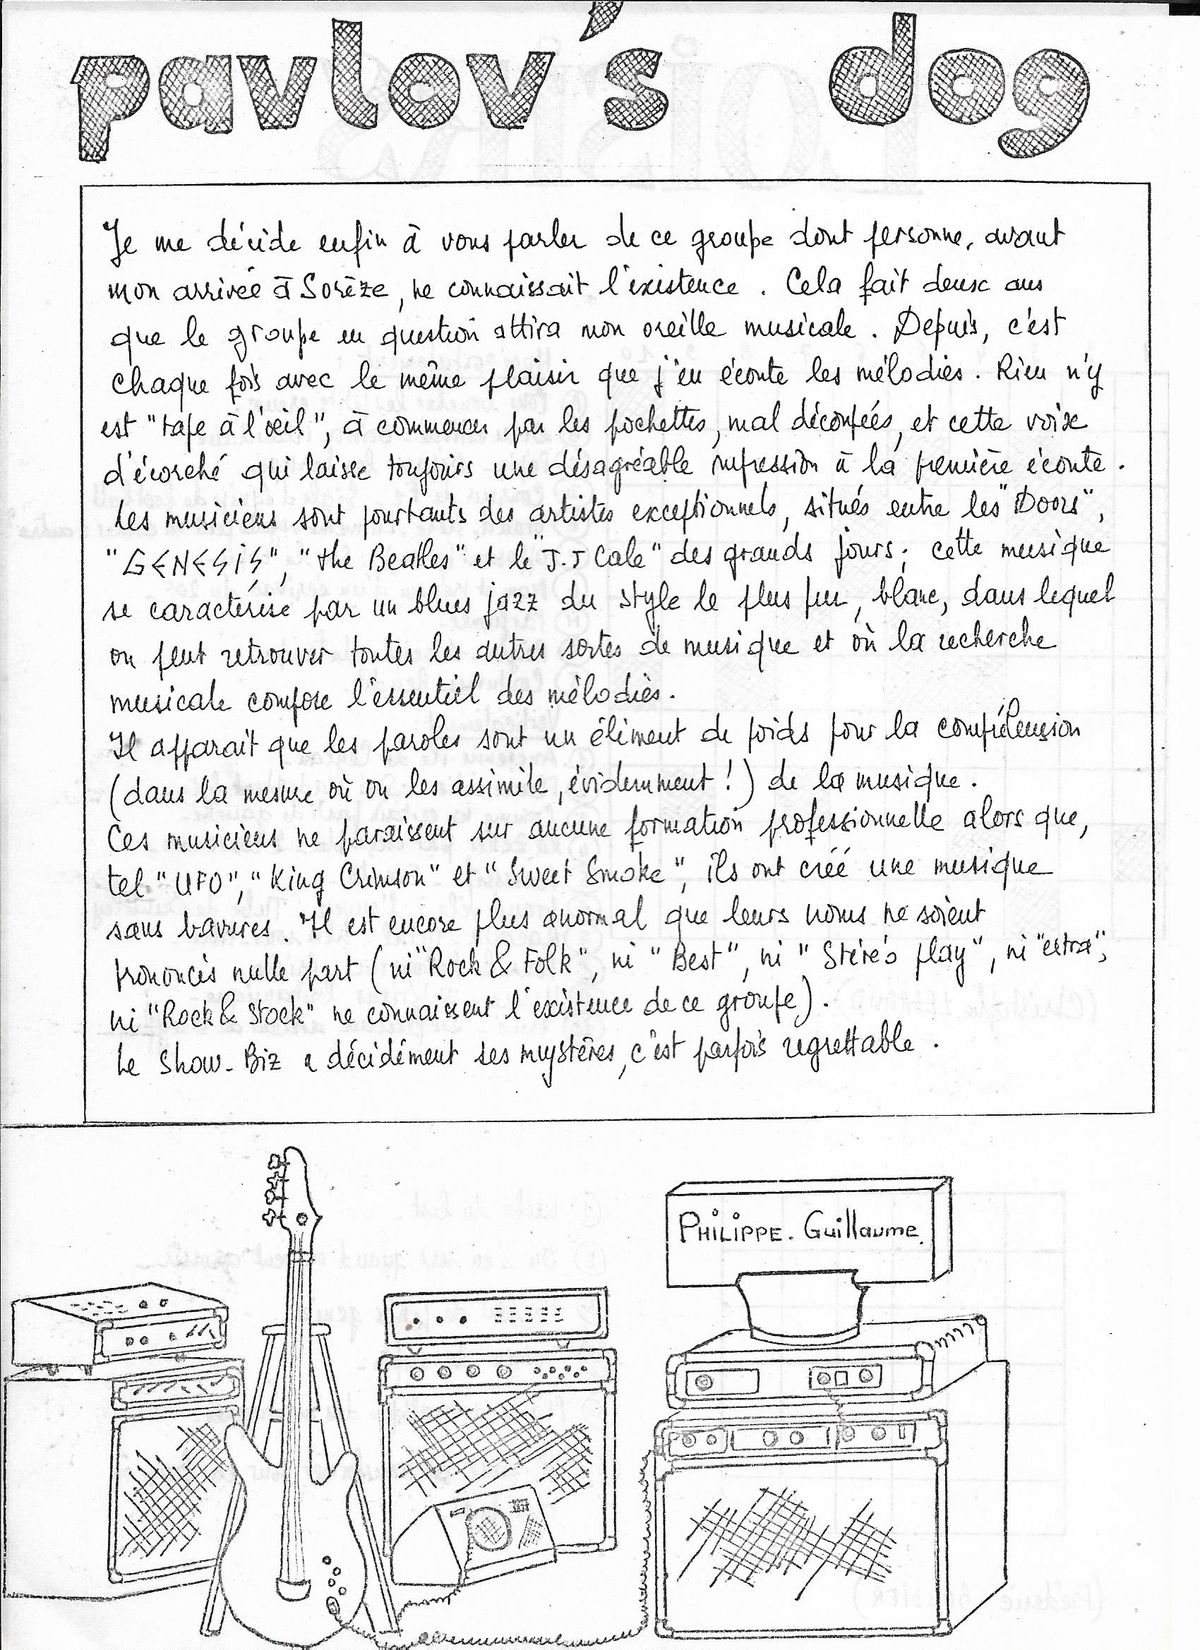 pavlov's dog
Je me décide enfin à vous parler de ce groupe dont personne, avant
mon arrivée à Sorèze, ne connaissait l'existence. Cela fait deux ans
que le groupe en question attira mon oreille musicale. Depuis, c'est
chaque fois avec le même plaisir que j'en écoute les mélodies. Rien n'y
est "tape à l'oeil", à commencer par les pochettes, mal décorées, et cette voix
d'écorché qui laisse toujours une désagréable impression à la première écoute.
Les musiciens sont pourtants des artistes exceptionnels, situés entre les "Doors",
"GENESIS", "The Beatles" et le "J.J Cale" des grands jours; cette musique
se caractérise par un blues jazz du style le plus pur, blanc, dans lequel
on peut retrouver toutes les autres sortes de musique et où la recherche
musicale compose l'essentiel des mélodies.
Il apparait que les paroles sont un élément de poids pour la compréhension
(dans la mesure où on les assimile, évidemment !) de la musique.
Ces musiciens ne paraissent sur aucune formation professionnelle alors que,
tel "UFO", "King Crimson" et "Sweet Smoke", ils ont créé une musique
sans bavures. Il est encore plus anormal que leurs noms ne soient
prononcés nulle part (ni "Rock & Folk", ni "Best", ni "Stéréo play", ni "extra",
ni "Rock & Stock" ne connaissent l'existence de ce groupe).
Le Show-Biz a décidément ses mystères, c'est parfois regrettable.
PHILIPPE. Guillaume.